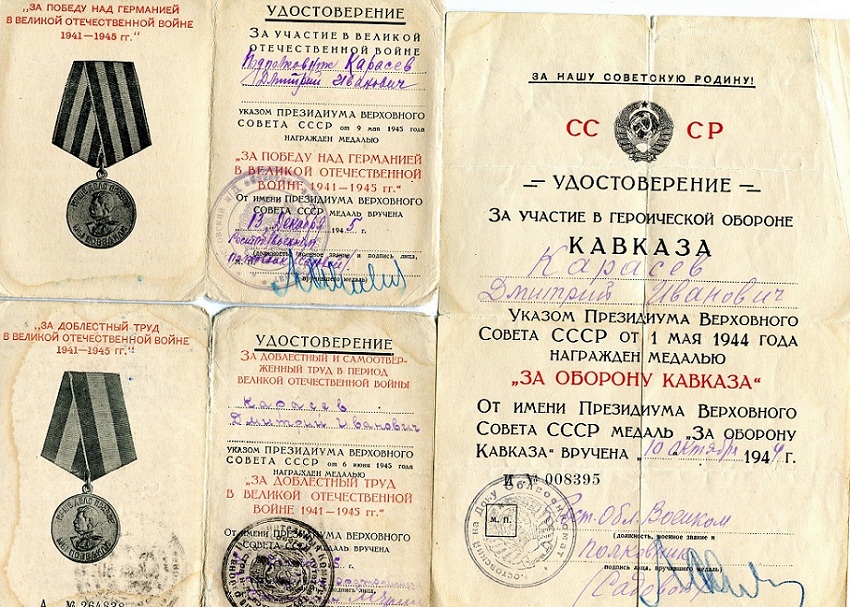 „ЗА ПОБЕДУ НАД ГЕРМАНИЕЙ
В ВЕЛИКОЙ ОТЕЧЕСТВЕННОЙ ВОЙНЕ
1941—1945 гг.“
НАШЕ ДЕЛО ПРАВОЕ
МЫ ПОБЕДИЛИ
УДОСТОВЕРЕНИЕ
ЗА УЧАСТИЕ В ВЕЛИКОЙ
ОТЕЧЕСТВЕННОЙ ВОЙНЕ
Подполковник Карасев
Дмитрий Иванович
УКАЗОМ ПРЕЗИДИУМА ВЕРХОВНОГО
СОВЕТА СССР от 9 мая 1945 года
НАГРАЖДЕН МЕДАЛЬЮ
„ЗА ПОБЕДУ НАД ГЕРМАНИЕЙ
В ВЕЛИКОЙ ОТЕЧЕСТВЕННОЙ
ВОЙНЕ 1941—1945 гг.“
От ИМЕНИ ПРЕЗИДИУМА ВЕРХОВНОГО
СОВЕТА СССР МЕДАЛЬ ВРУЧЕНА
13 Декабря 1945 г.
(должность, военное звание и подпись лица,
вручившего медаль)
„ЗА ДОБЛЕСТНЫЙ ТРУД
В ВЕЛИКОЙ ОТЕЧЕСТВЕННОЙ ВОЙНЕ
1941—1945 гг.“
НАШЕ ДЕЛО ПРАВОЕ
МЫ ПОБЕДИЛИ
А № 264838
УДОСТОВЕРЕНИЕ
ЗА ДОБЛЕСТНЫЙ И САМООТВЕР-
ЖЕННЫЙ ТРУД В ПЕРИОД
ВЕЛИКОЙ ОТЕЧЕСТВЕННОЙ ВОЙНЫ
Карасев
Дмитрий Иванович
УКАЗОМ ПРЕЗИДИУМА ВЕРХОВНОГО
СОВЕТА СССР от 6 июня 1945 года
НАГРАЖДЕН МЕДАЛЬЮ
„ЗА ДОБЛЕСТНЫЙ ТРУД
В ВЕЛИКОЙ ОТЕЧЕСТВЕННОЙ
ВОЙНЕ 1941—1945 гг.“
От ИМЕНИ ПРЕЗИДИУМА ВЕРХОВНОГО
СОВЕТА СССР МЕДАЛЬ ВРУЧЕНА
ЗА НАШУ СОВЕТСКУЮ РОДИНУ!
СС СР
УДОСТОВЕРЕНИЕ
ЗА УЧАСТИЕ В ГЕРОИЧЕСКОЙ ОБОРОНЕ
КАВКАЗА
Карасев
Дмитрий Иванович
УКАЗОМ ПРЕЗИДИУМА ВЕРХОВНОГО
СОВЕТА СССР ОТ 1 МАЯ 1944 ГОДА
НАГРАЖДЕН МЕДАЛЬЮ
„ЗА ОБОРОНУ КАВКАЗА“
ОТ ИМЕНИ ПРЕЗИДИУМА ВЕРХОВНОГО
СОВЕТА СССР МЕДАЛЬ „ЗА ОБОРОНУ
КАВКАЗА“ ВРУЧЕНА „10 октября 1944 г.
И № 008395
М. П.
Рост. Обл. Военком
(должность, военное звание и
полковник
подпись лица, вручившего медаль)
(Садовой)